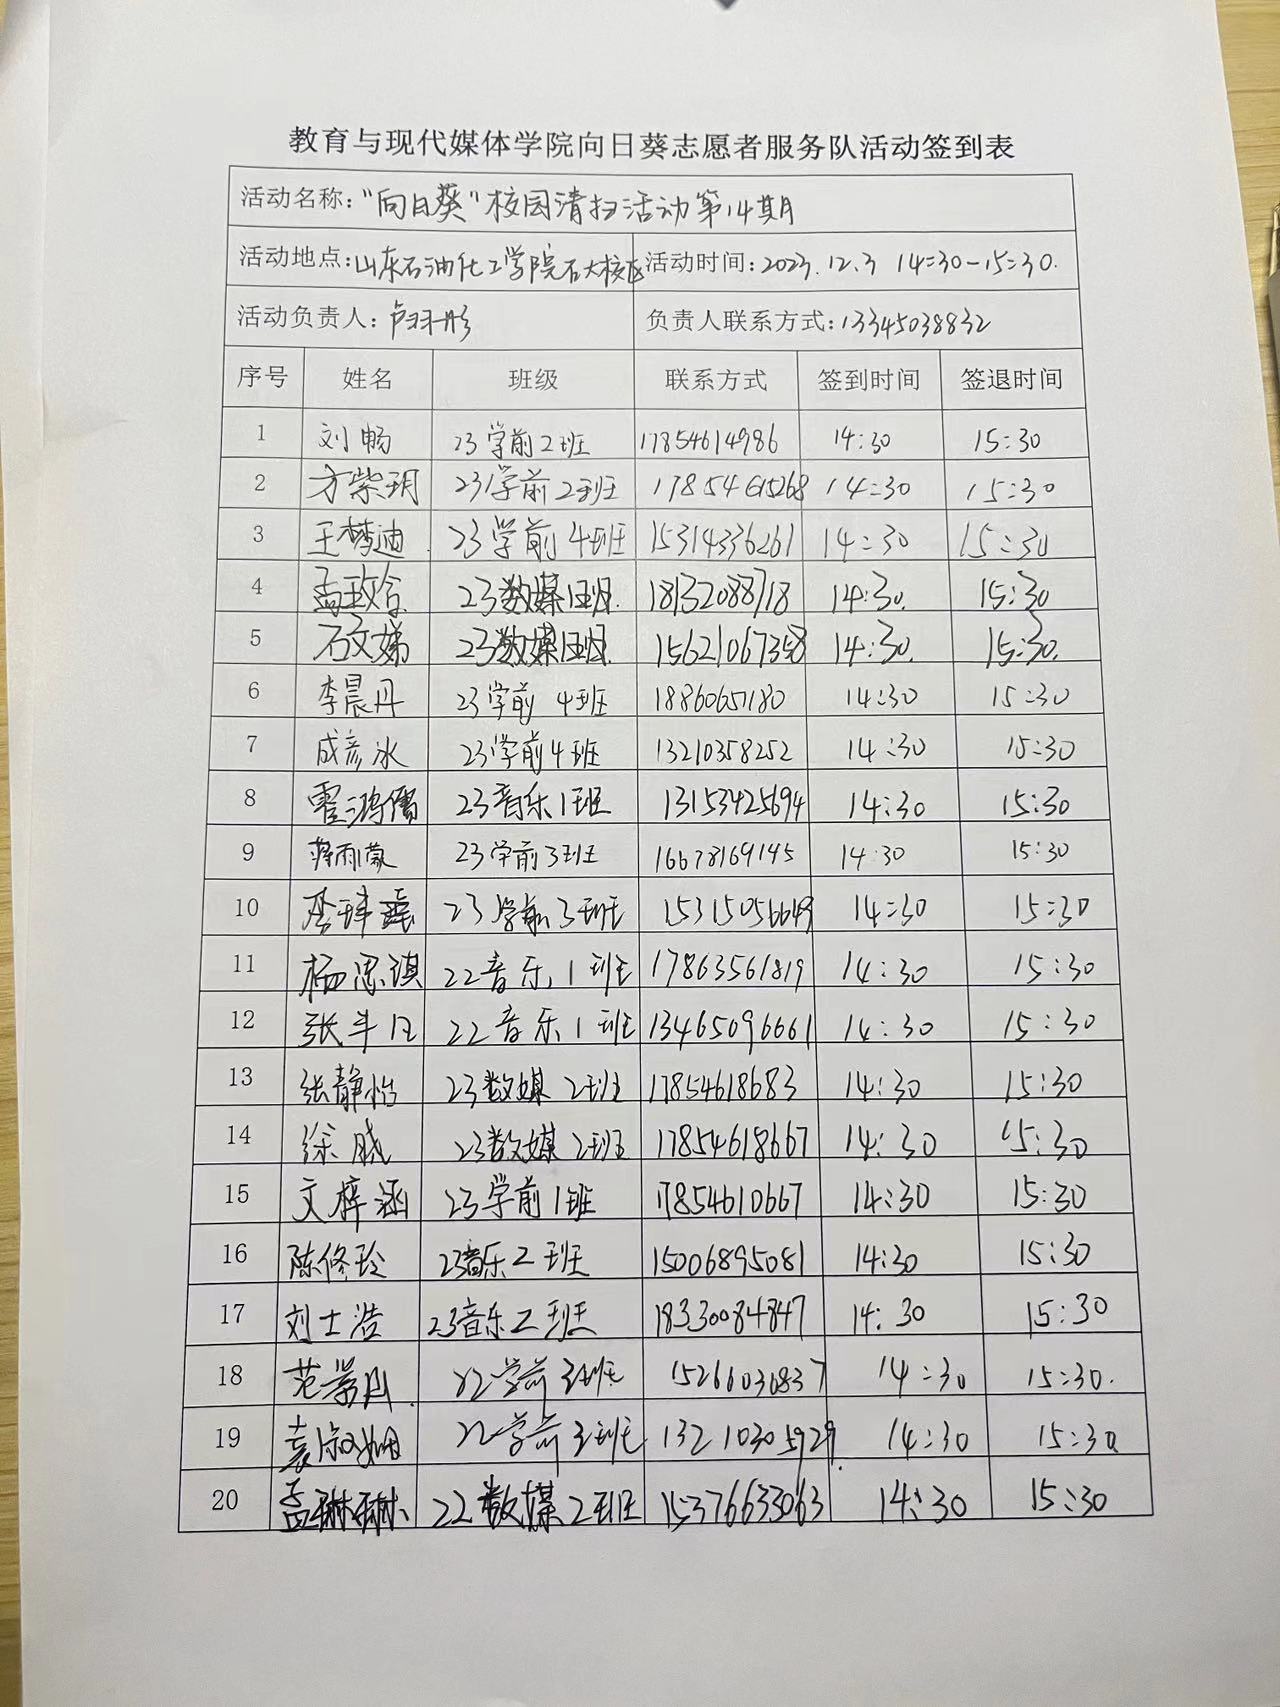 教育与现代媒体学院向日葵志愿者服务队活动签到表
活动名称："向日葵"校园清扫活动第14期
活动地点：山东石油化工学院石大校区 活动时间：2023.12.3 14:30-15:30.
活动负责人：卢 彤 负责人联系方式：13345038832
序号 姓名 班级 联系方式 签到时间 签退时间
1 刘畅 23学前2班 17854614986 14:30 15:30
2 方紫玥 23学前2班 17854615268 14:30 15:30
3 王梦迪 23学前4班 15314336261 14:30 15:30
4 孟玫含 23数媒1班. 18132088718 14:30. 15:30
5 石文娣 23数媒1班. 15621067358 14:30. 15:30.
6 李晨丹 23学前4班 18860651180 14:30 15:30
7 成彦冰 23学前4班 13210358252 14:30 15:30
8 霍鸿儒 23音乐1班 13153425694 14:30 15:30
9 蒋雨蒙 23学前3班 16678169145 14:30 15:30
10 23学前3班 15315056649 14:30 15:30
11 杨思琪 22音乐1班 17863561819 14:30 15:30
12 张斗 22音乐1班 13465096661 14:30 15:30
13 张静怡 23数媒2班 17854618683 14:30 15:30
14 徐晓 23数媒2班 17854618667 14:30 15:30
15 文梓涵 23学前1班 17854610667 14:30 15:30
16 陈修玲 23音乐2班 15006895081 14:30 15:30
17 刘士浩 23音乐2班 18330084847 14:30 15:30
18 范景 22学前3班 15266036837 14:30 15:30.
19 袁淑姻 22学前3班 13210305929. 14:30 15:30
20 孟琳琳 22数媒2班 15376633063 14:30 15:30